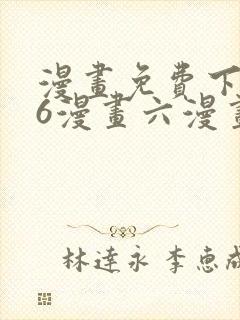 漫畫免費下
6漫畫六漫畫
林達永 李惠成